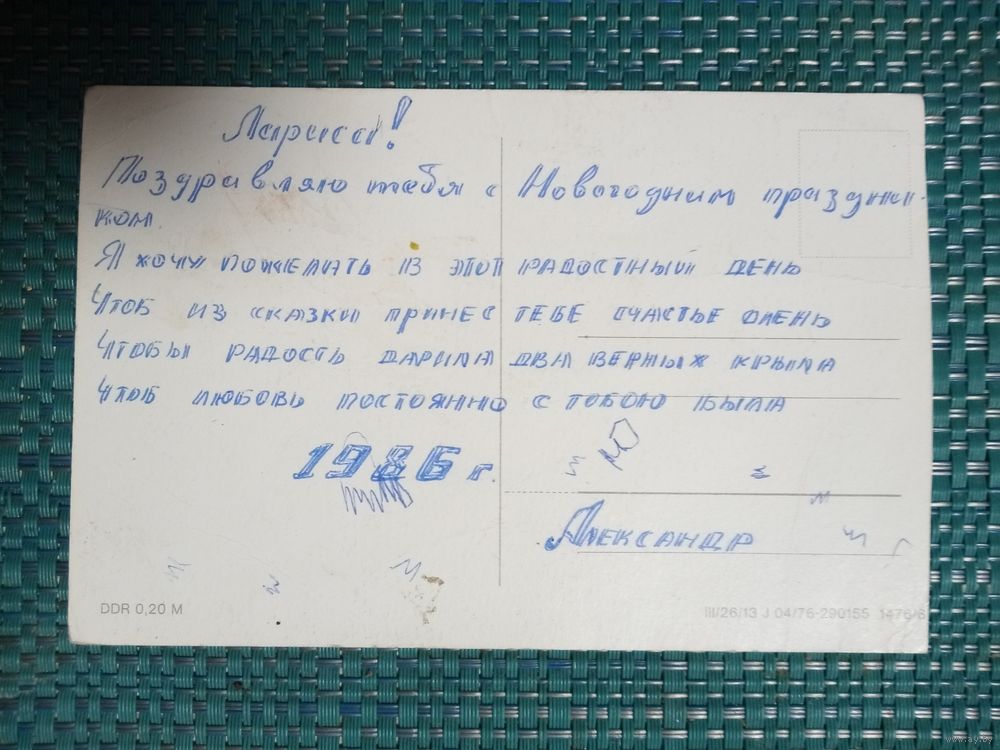 Лариса!
Поздравляю тебя с Новогодним праздни-
ком.
Я хочу пожелать в этот радостный день
Чтоб из сказки принес тебе счастье олень
Чтобы радость дарила два верных крыла
Чтоб любовь постоянно с тобою была
1986 г.
Александр
DDR 0,20 M
III/26/13 J 04/76-290155 1476/6
www.ay.by